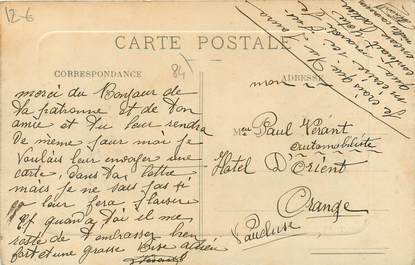 12€
CARTE POSTALE
84
CORRESPONDANCE
ADRESSE
merci du Bonjour de
ta patronne et de ton
amie et tu leur rendra
de même pour moi je
voulais leur envoyer une
carte, dans ta lettre
mais je ne sais pas si
ça leur fera plaisir
et quand a toi il me
reste de t'embrasser bien
fort et une grosse Bise
mon
Mon Paul Vérant
automobiliste
Hotel D'Orient
Orange
Vaucluse
je crois que